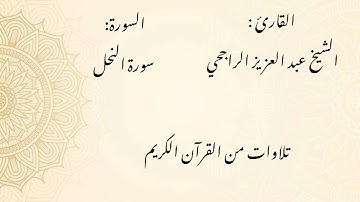 القارئ : السورة:
الشيخ عبد العزيز الراجحي سورة النحل
تلاوات من القرآن الكريم